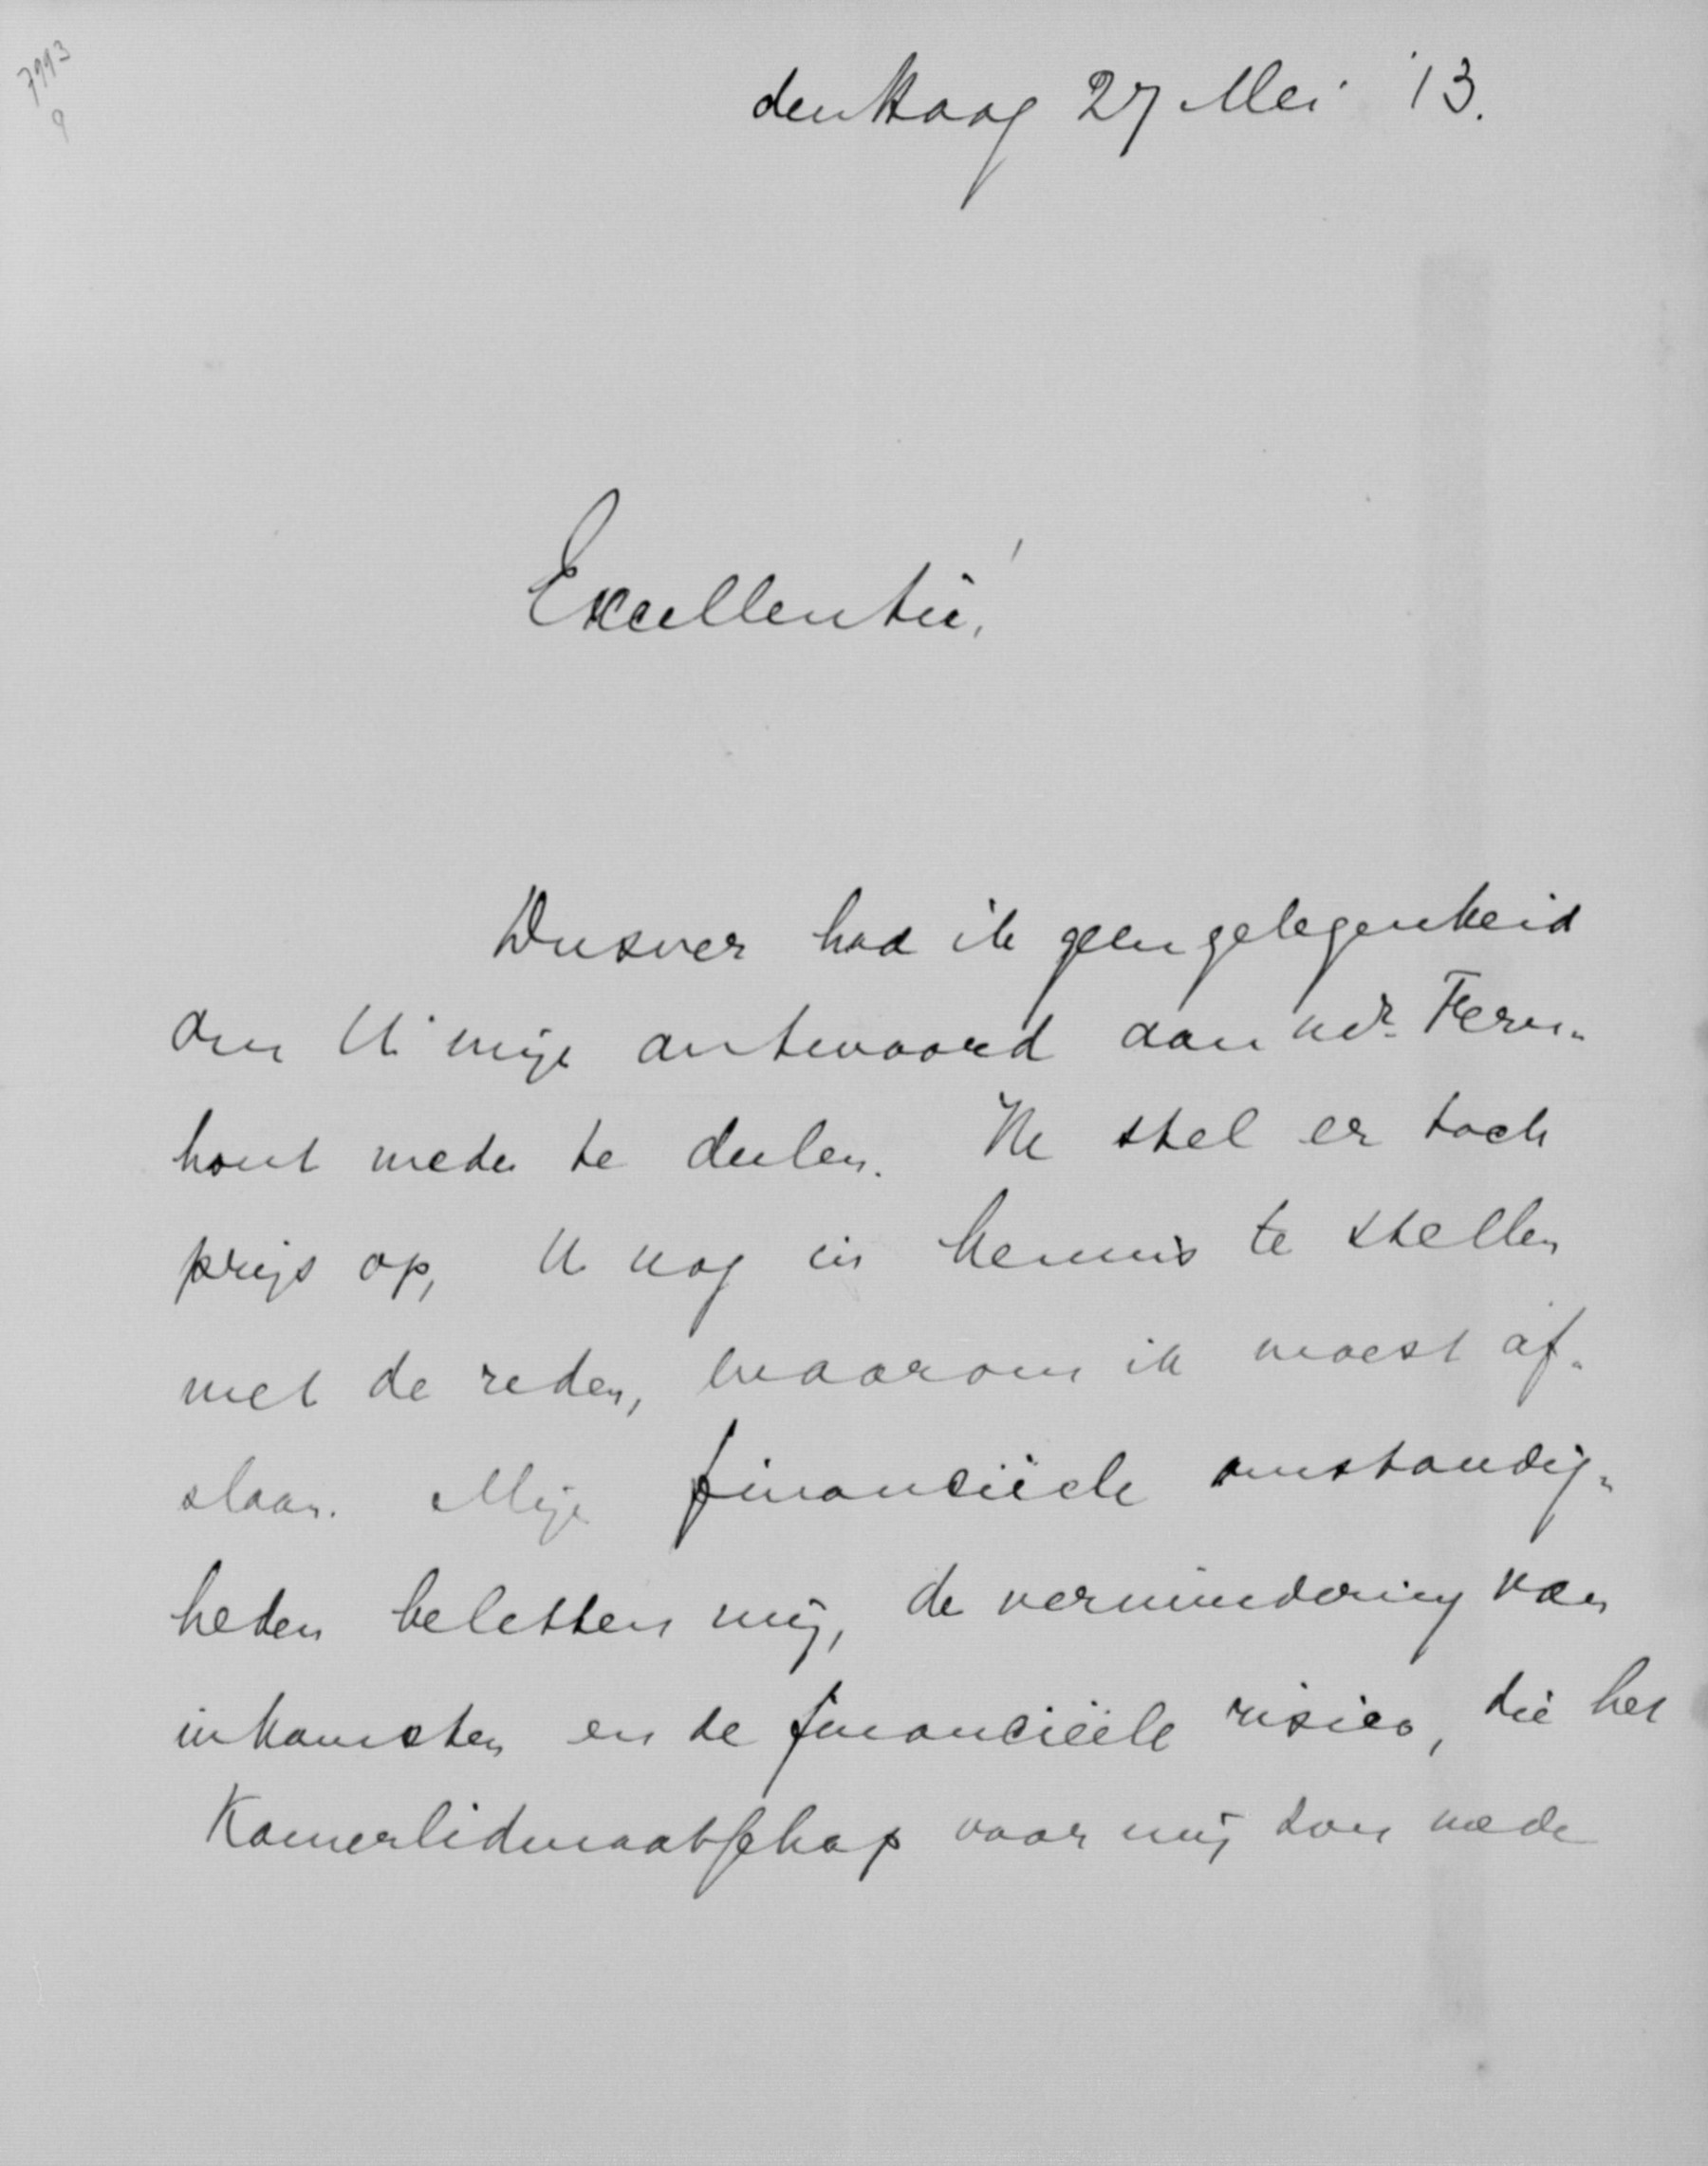 7993
9
den Haag 27 Mei '13.
Excellentie!
Dusver had ik geen gelegenheid
om U mijn antwoord aan mr. Heems-
hout mede te deelen. Ik stel er toch
prijs op, U nog in kennis te stellen
met de reden, waarom ik moest af-
slaan. Mijn financiëele omstandig-
heden beletten mij, de vermindering van
inkomsten en de financiëele risico, die het
Kamerlidmaatschap voor mij zou mede